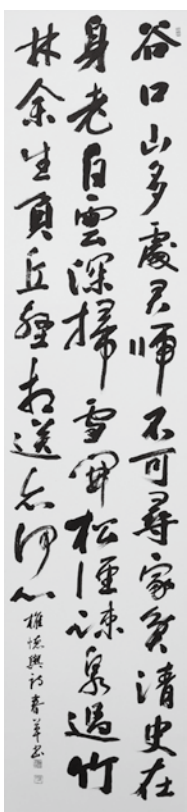 谷口山多處君歸不可尋家貧清史在
身老白雲深掃雪開松徑疎泉過竹
林余生負丘壑相送亦何心
權德輿詩春草書